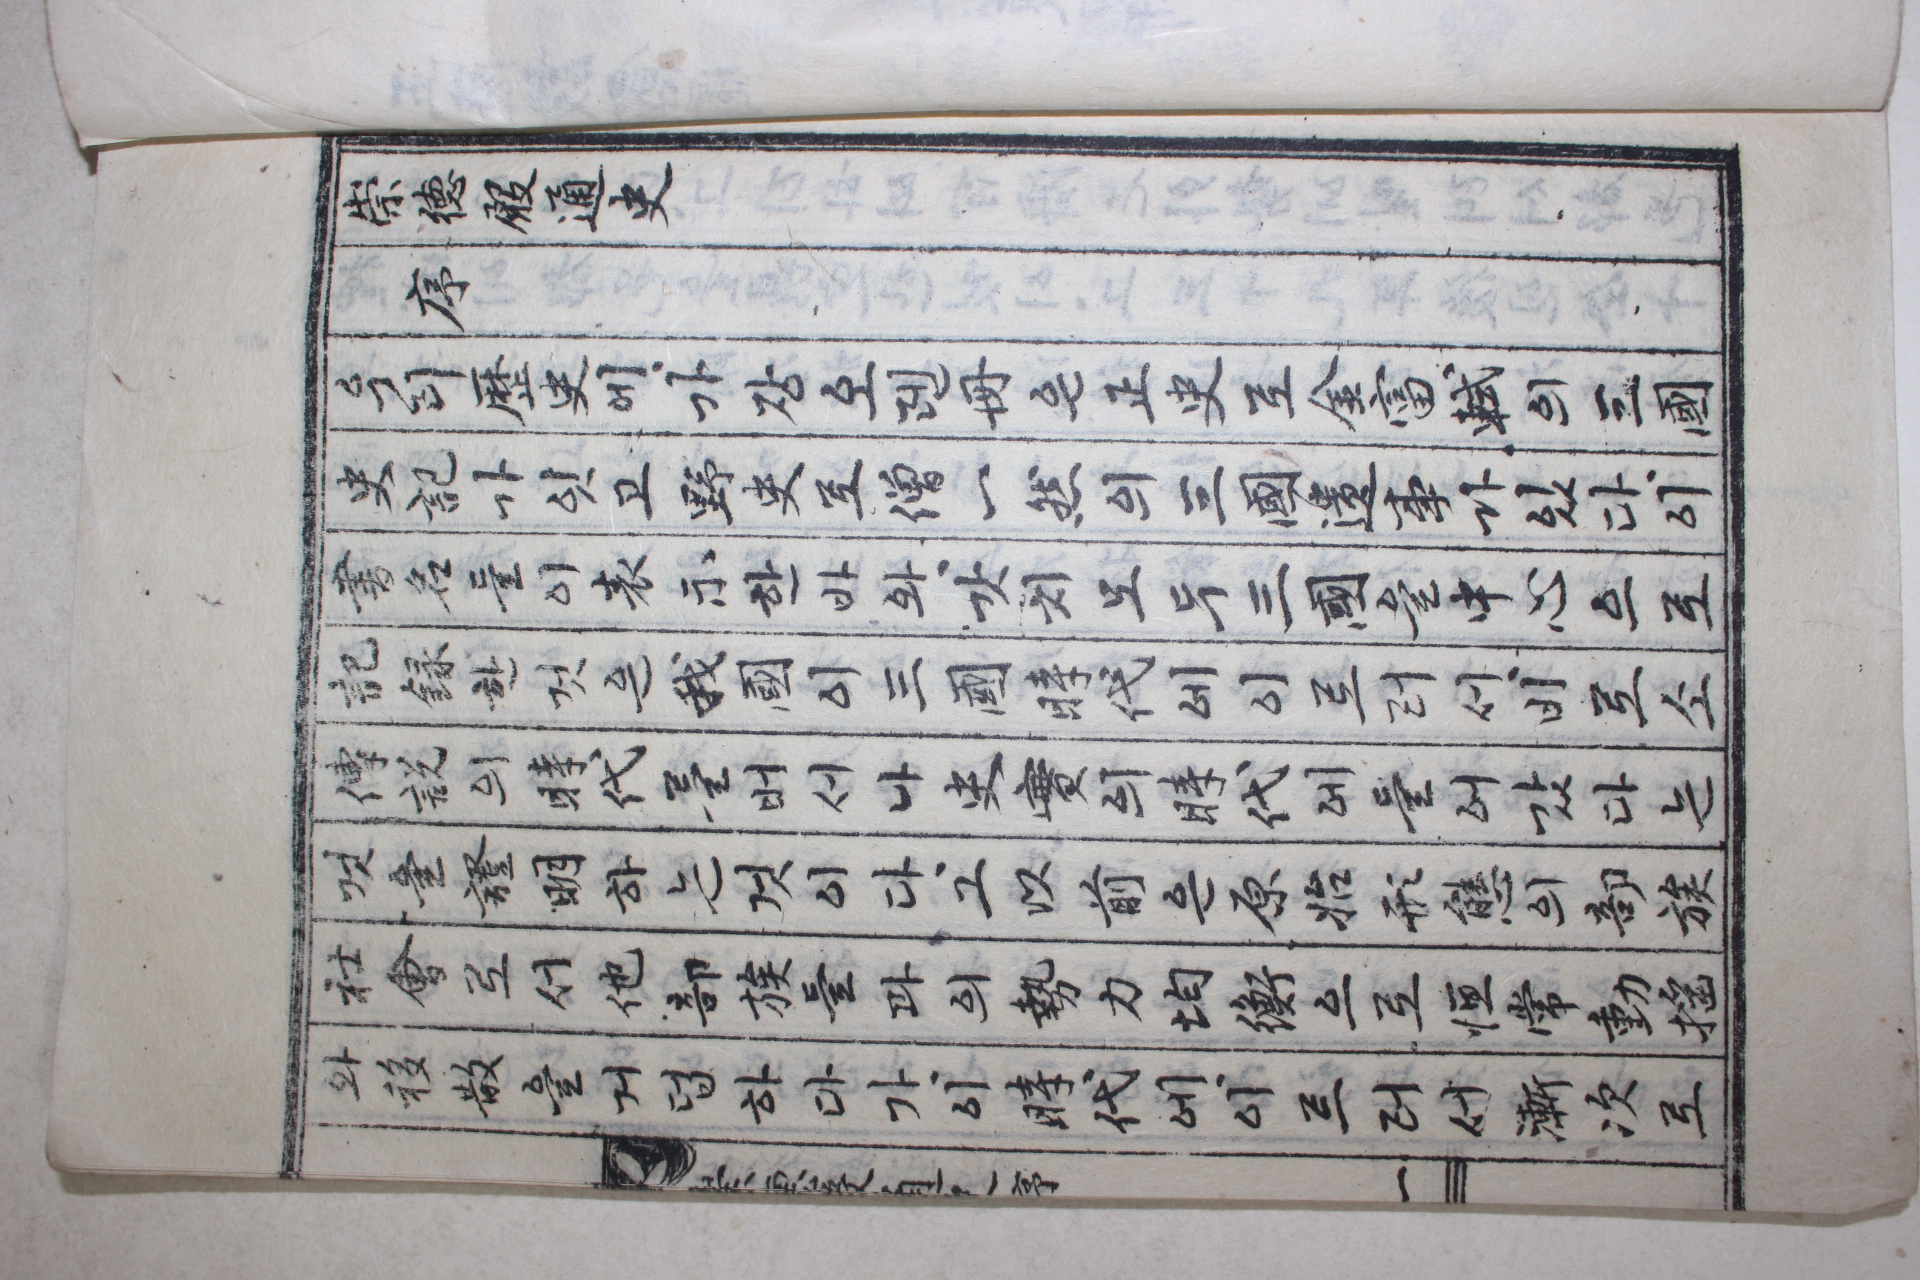 崇德殿通史
序
우리歷史에가장오랜册은正史로金富軾의三國
史記가잇고野史로僧一然의三國遺事가있다이
書名들이表示한바와갓치모두三國을中心으로
記錄한것은我國이三國時代에이르러서비로소
傳說의時代를버서나史實의時代에들어갔다는
것을證明하는것이다그以前은原始形態의部族
社會로서他部族들과의勢力均衡으로恒常動搖
와移散을거듭하다가이時代에이르러서漸次로
序 一